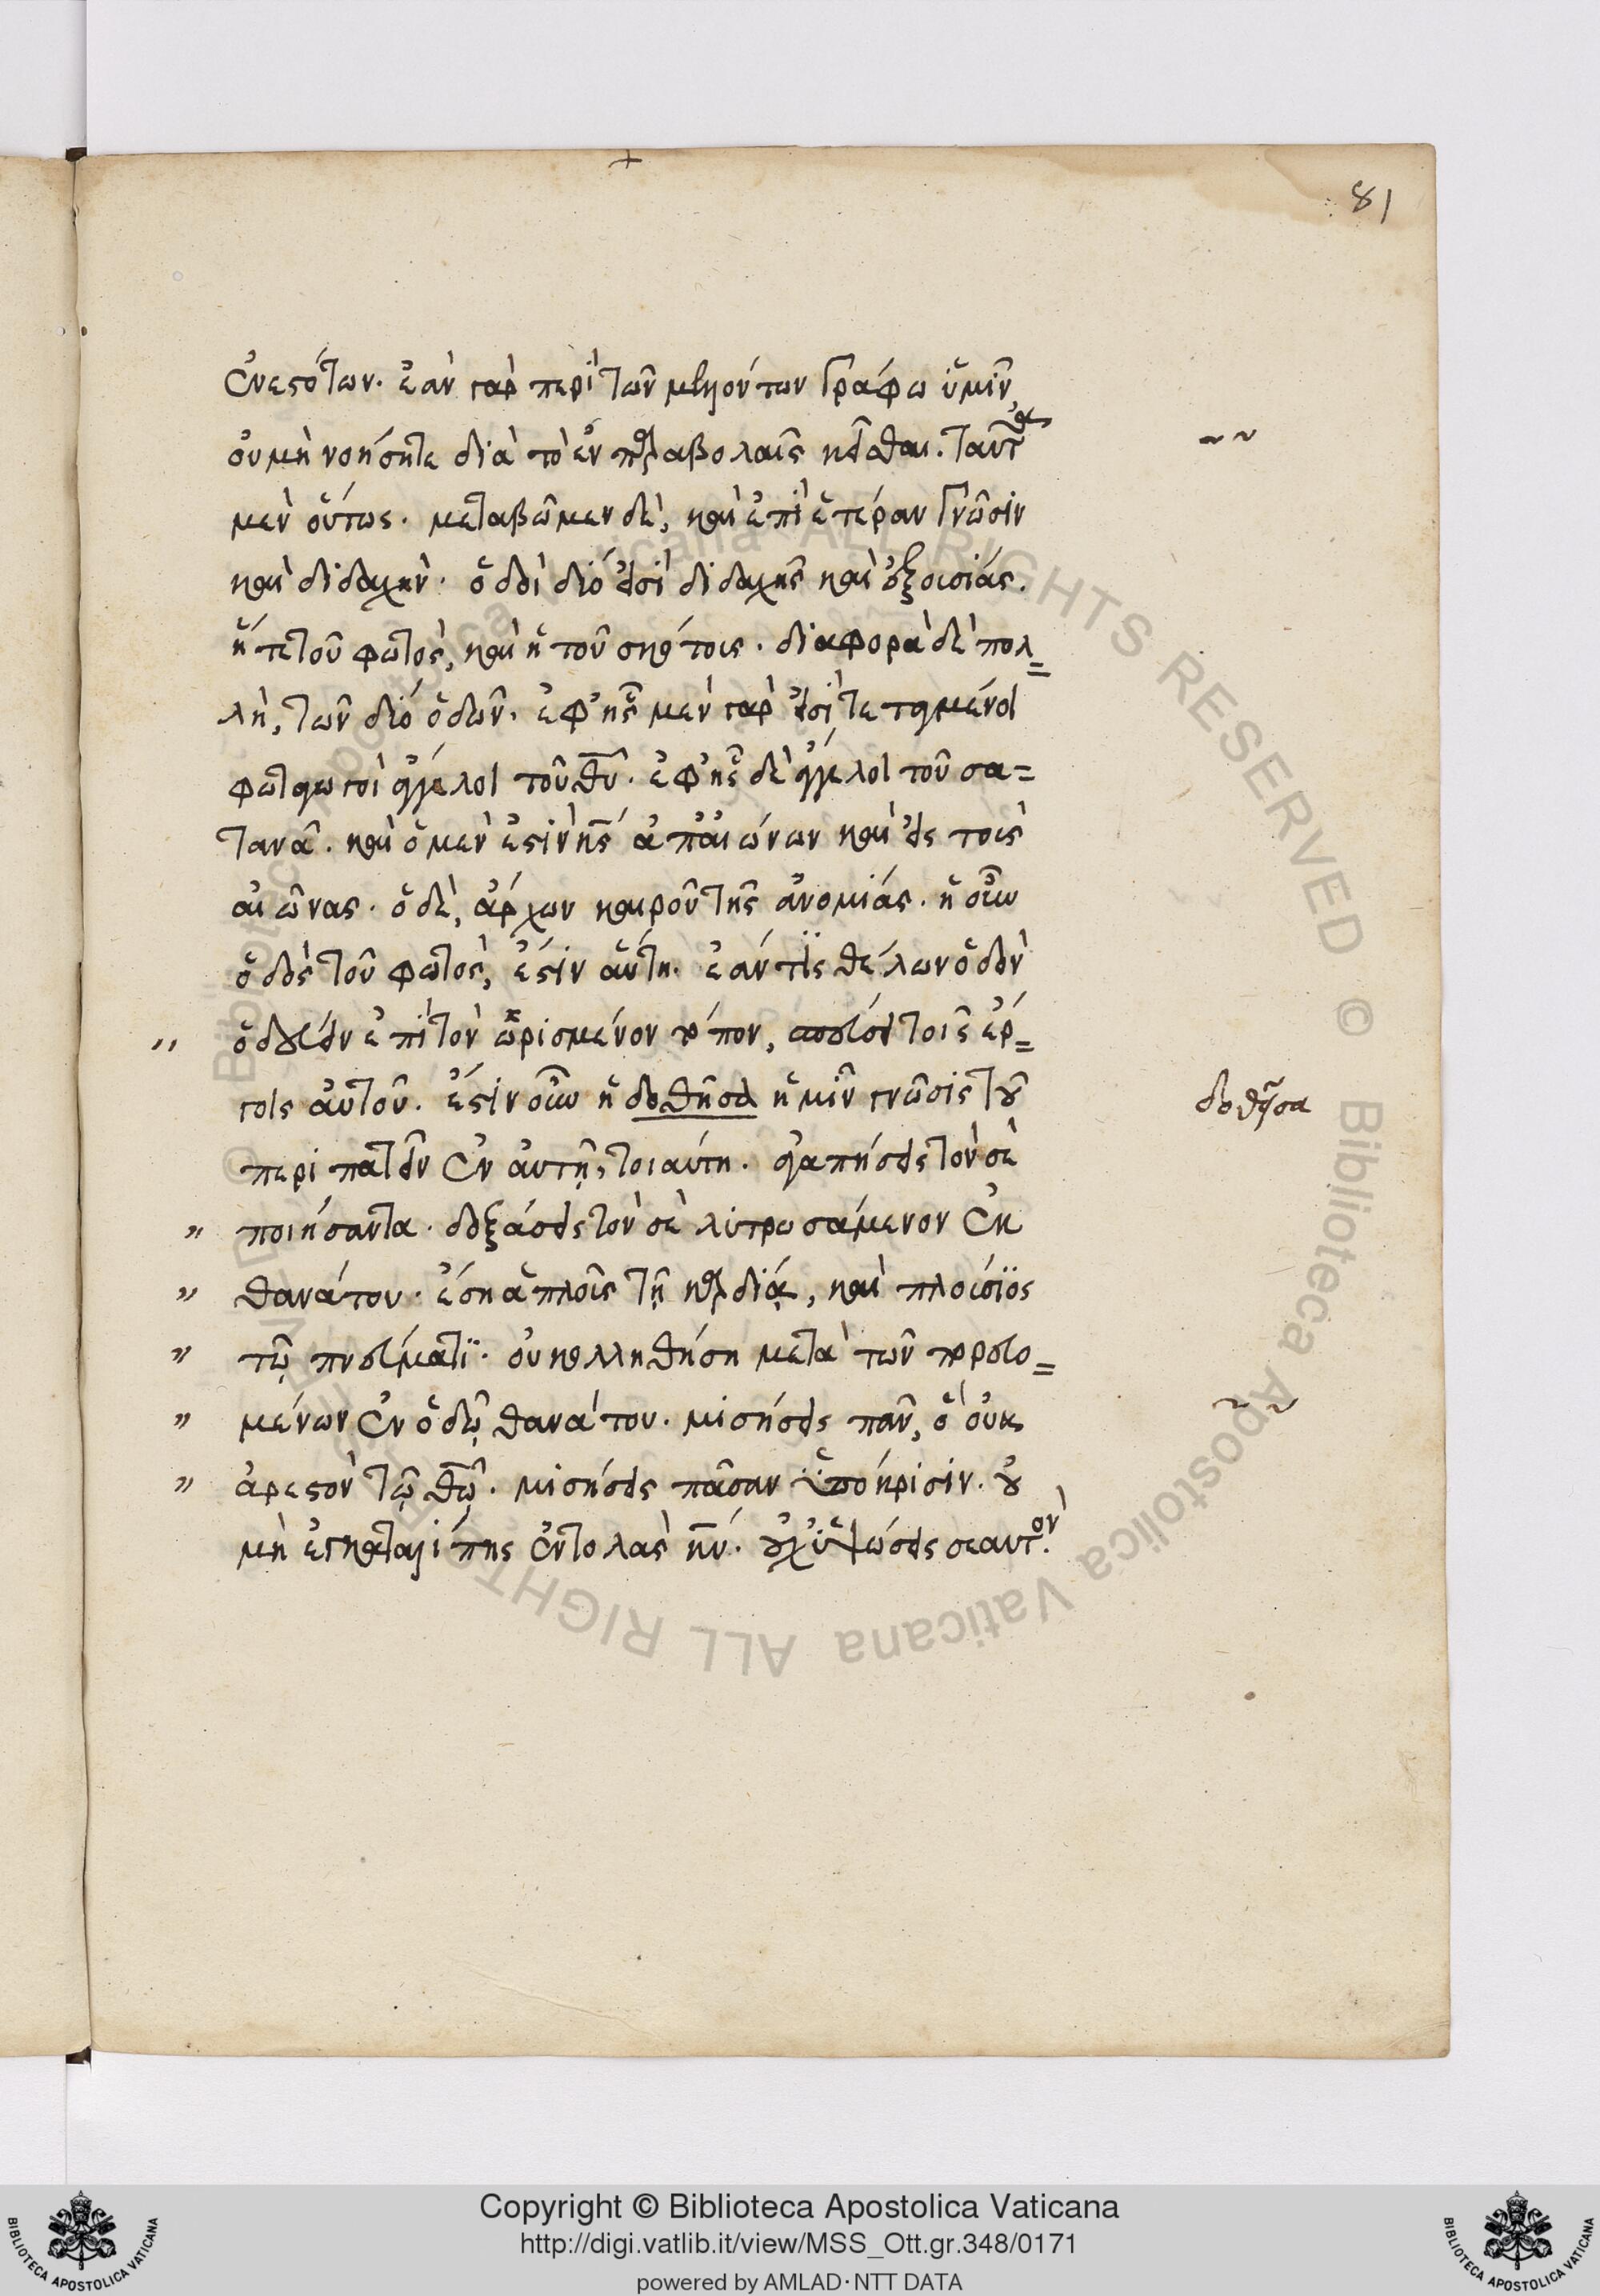 81
ἐνεστώτων. ἐὰν γὰρ περὶ τῶν μελλόντων γράφω ὑμῖν,
οὐ μὴ νοήσητε διὰ τὸ ἐν παραβολαῖς κεῖσθαι. ταῦτα
μὲν οὕτως. μεταβῶμεν δὲ, καὶ ἐπὶ ἑτέραν γνῶσιν
καὶ διδαχὴν. ὁδοὶ δύο εἰσὶ διδαχῆς καὶ ἐξουσίας.
ἥ τε τοῦ φωτὸς, καὶ ἡ τοῦ σκότους. διαφορὰ δὲ πολ=
λὴ, τῶν δύο ὁδῶν. ἐφ' ἧς μὲν γὰρ εἰσὶ τεταγμένοι
φωταγωγοὶ ἄγγελοι τοῦ θῦ. ἐφ' ἧς δὲ ἄγγελοι τοῦ σα=
τανᾶ. καὶ ὁ μὲν ἐστὶν κς ἀπ' αἰώνων καὶ εἰς τοὺς
αἰῶνας. ὁ δὲ, ἄρχων καιροῦ τῆς ἀνομίας. ἡ οὖν
ὁδὸς τοῦ φωτὸς, ἐστὶν αὕτη. ἐάν τις θέλων ὁδὸν
" ὁδεύειν ἐπὶ τὸν ὡρισμένον τόπον, σπεύσει τοῖς ἔρ=
γοις αὐτοῦ. ἔστιν οὖν ἡ δοθῆσα ἡμῖν γνῶσις τοῦ
δοθεῖσα
περιπατεῖν ἐν αὐτῇ, τοιαύτη. ἀγαπήσεις τὸν σὲ
" ποιήσαντα. δοξάσεις τὸν σὲ λυτρωσάμενον ἐκ
" θανάτου. ἔση ἁπλοῦς τῇ καρδίᾳ, καὶ πλούσϊος
" τῷ πνεύματϊ. οὐ κολληθήση μετὰ τῶν πορευο=
" μένων ἐν ὁδῷ θανάτου. μισήσεις πᾶν, ὃ οὐκ
" ἀρεστὸν τῷ θῷ. μισήσεις πᾶσαν ὑπόκρισιν. οὐ
μὴ ἐγκαταλίπης ἐντολὰς κῦ. οὐχ ὑψώσεις σεαυτὸν.
Copyright © Biblioteca Apostolica Vaticana
http://digi.vatlib.it/view/MSS_Ott.gr.348/0171
powered by AMLAD·NTT DATA